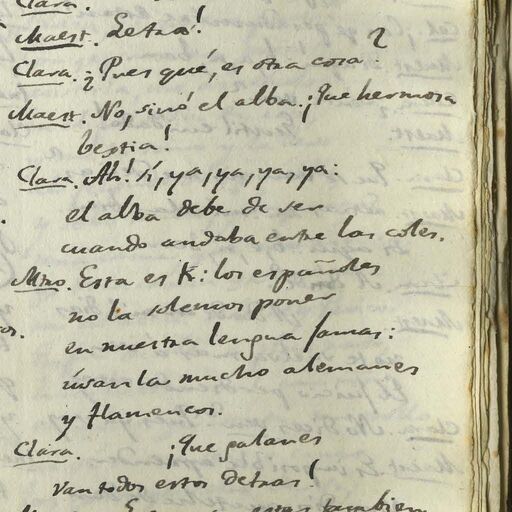 Clara.
Maest. Letra!
Clara. ¿Pues qué, es otra cosa?
Maest. No, sinó el alba. ¡Que hermosa
bestia!
Clara. Ah! sí, ya, ya, ya, ya:
el alba debe de ser
cuando andaba entre las coles.
Mtro. Esta es K: los españoles
no la solemos poner
en nuestra lengua jamas:
úsanla mucho alemanes
y flamencos.
Clara. ¡Que galanes
van todos estos detras!
estas tambien